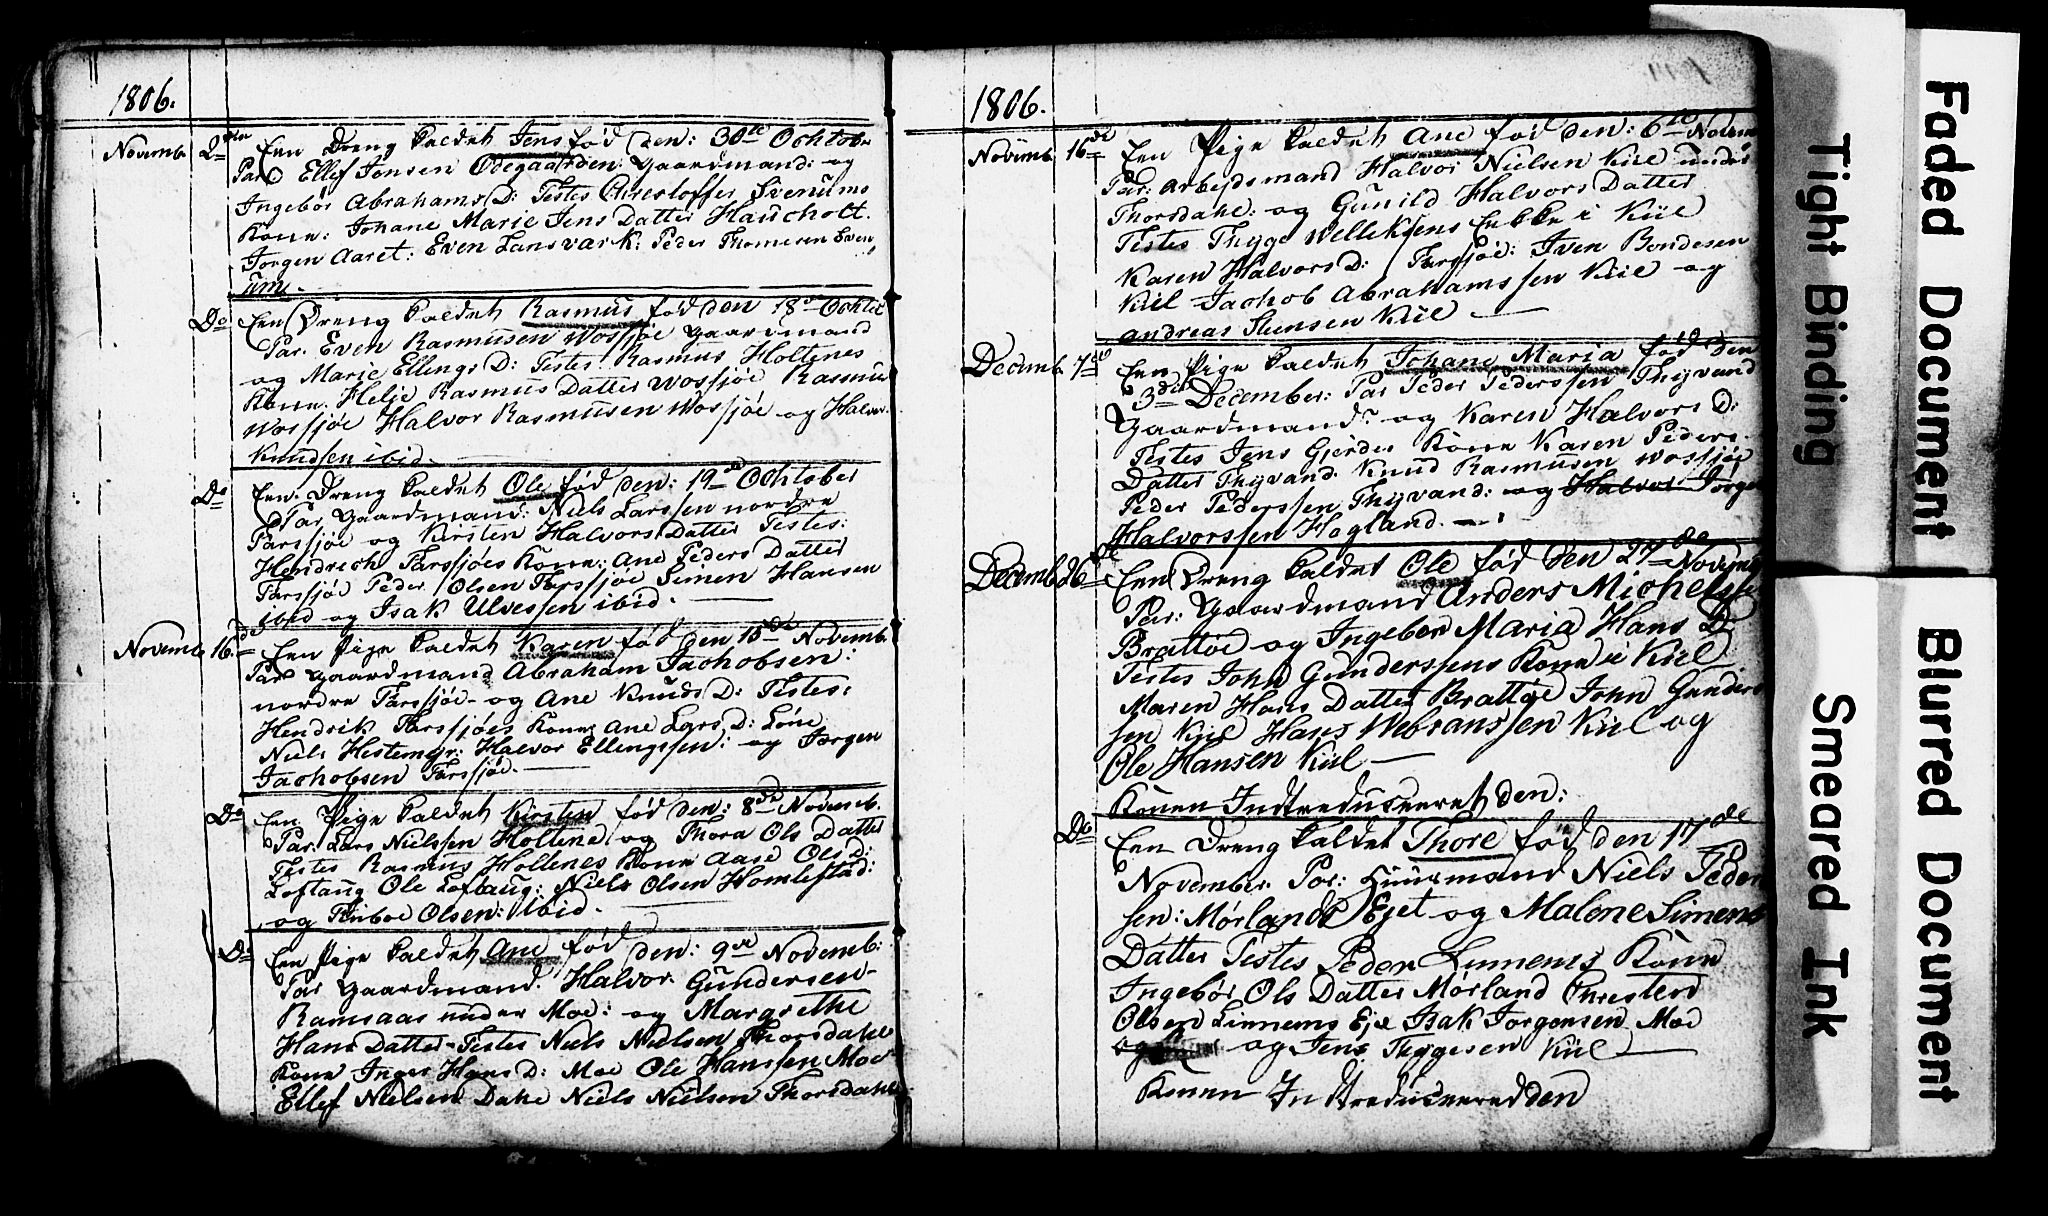 1806.
Novemb. 2den Een Dreng kaldet Jens fød den: 30te Ochtobr
Par Ellef Jonsen Ødegaarden: Gaardmand: og
Ingebør Abrahams D: Testes Christoffer Svenums
Kone: Johane Marie Jens Datter Haucholt.
Jorgen Aaret: Even Lansvark: Peder Thomesen Sven
um.
Do Een Dreng kaldet Rasmus fød den 18de Ochtob
Par. Even Rasmusen Wossjøe Gaardmand
og Marie Ellings D: Testes Rasmus Holtenes
Kone. Helje Rasmus Datter Wossjøe Rasmus
Wossjøe Halvor Rasmusen Wossjøe og Halvor
Knudsen ibid.
Do Een Dreng kaldet Ole fød den: 19de Ochtober
Par Gaardmand: Niels Larssen nordre
Farssjøe og Kirsten Halvors Datter Testes:
Hendrich Farssjøes Kone: Ane Peders Datter
Farssjøe Peder Olsen Farssjøe Simen Hansen
ibid og Isak Ulvessen ibid.
Novemb 16de Een Pige kaldet Karen fød den 15de Novemb.
Par Gaardmand Abraham Jachobsen:
nordre Farssjøe og Ane Knuds D: Testes:
Hendrik Farssjøes Kone Ane Lars D: Løne
Niels Hestemyr: Halvor Ellingssen: og Jørgen
Jachobsen Farssjøe.
Do Een Pige kaldet Kirsten fød den: 8de Novemb.
Par. Lars Nielssen Holtene og Thora Ols Datter
Testes Rasmus Holtenes Kone Aase Ols D:
Loftaug Ole Loftaug: Niels Olsen Homlestad:
og Olsen: ibid.
Do Een Pige kaldet Ane fød den: 9de Novemb:
Par Gaardmand. Halvor Gundersen
Ramsaas under Moe: og Margrethe
Hans Datter Testes Niels Nielsen Thorsdahl
Kone Inger Hans D: Moe Ole Hanssen Moe
Ellef Nielsen Dahl Niels Nielsen Thorsdahl
1806.
Novemb 16de Een Pige kaldet Ane fød den: 6te Novem
Par: Arbeydsmand Halvor Nielsen Kiil under
Thorsdahl: og Gunild Halvors Datter
Testes Thyge Welleksens Enkke i Kiil
Karen Halvors D: Farsjøe: Iven Bondesen
Kiil Jachob Abrahamssen Kiil og
Andreas Kiil
Decemb. 7de Een Pige kaldet Johane Maria fød Den
3de December: Par Peder Pederssen Thyvand
Gaardmand: og Karen Halvors D:
Testes Jens Gjerdes Kone Karen Peders
Datter Thyvand. Knud Rasmusen Wossjøe
Peder Pederssen Thyvand: og Halvor Jorgen
Halvorssen Hogland.
Decemb 26de Een Dreng kaldet Ole fød den 27de Novemb
Par: Gaardmand Anders Michelsse
Brattøe og Ingebor Maria Hans D
Testes John Gunderssens Kone i Kiil
Maren Hans Datter Brattøe John Gunders
sen Kiil Hans Webranssen Kiil og
Ole Hansen Kiil
Konen Indtreduseeret den:
Do Een Dreng kaldet Thore fød den 17de
November. Par: Huusmand Niels Peder
sen: Mørlands Ejet og Malene Simens
Datter Testes Peder Linnems Kone
Ingebør Ols Datter Mørland Christen
Olsen Linnems Eje Isak Jorgensen Moe
og og Jens Thygesen Kiil
Konen Indtreduseered den
Faded Document
Tight Binding
Blurred Document
Smeared Ink